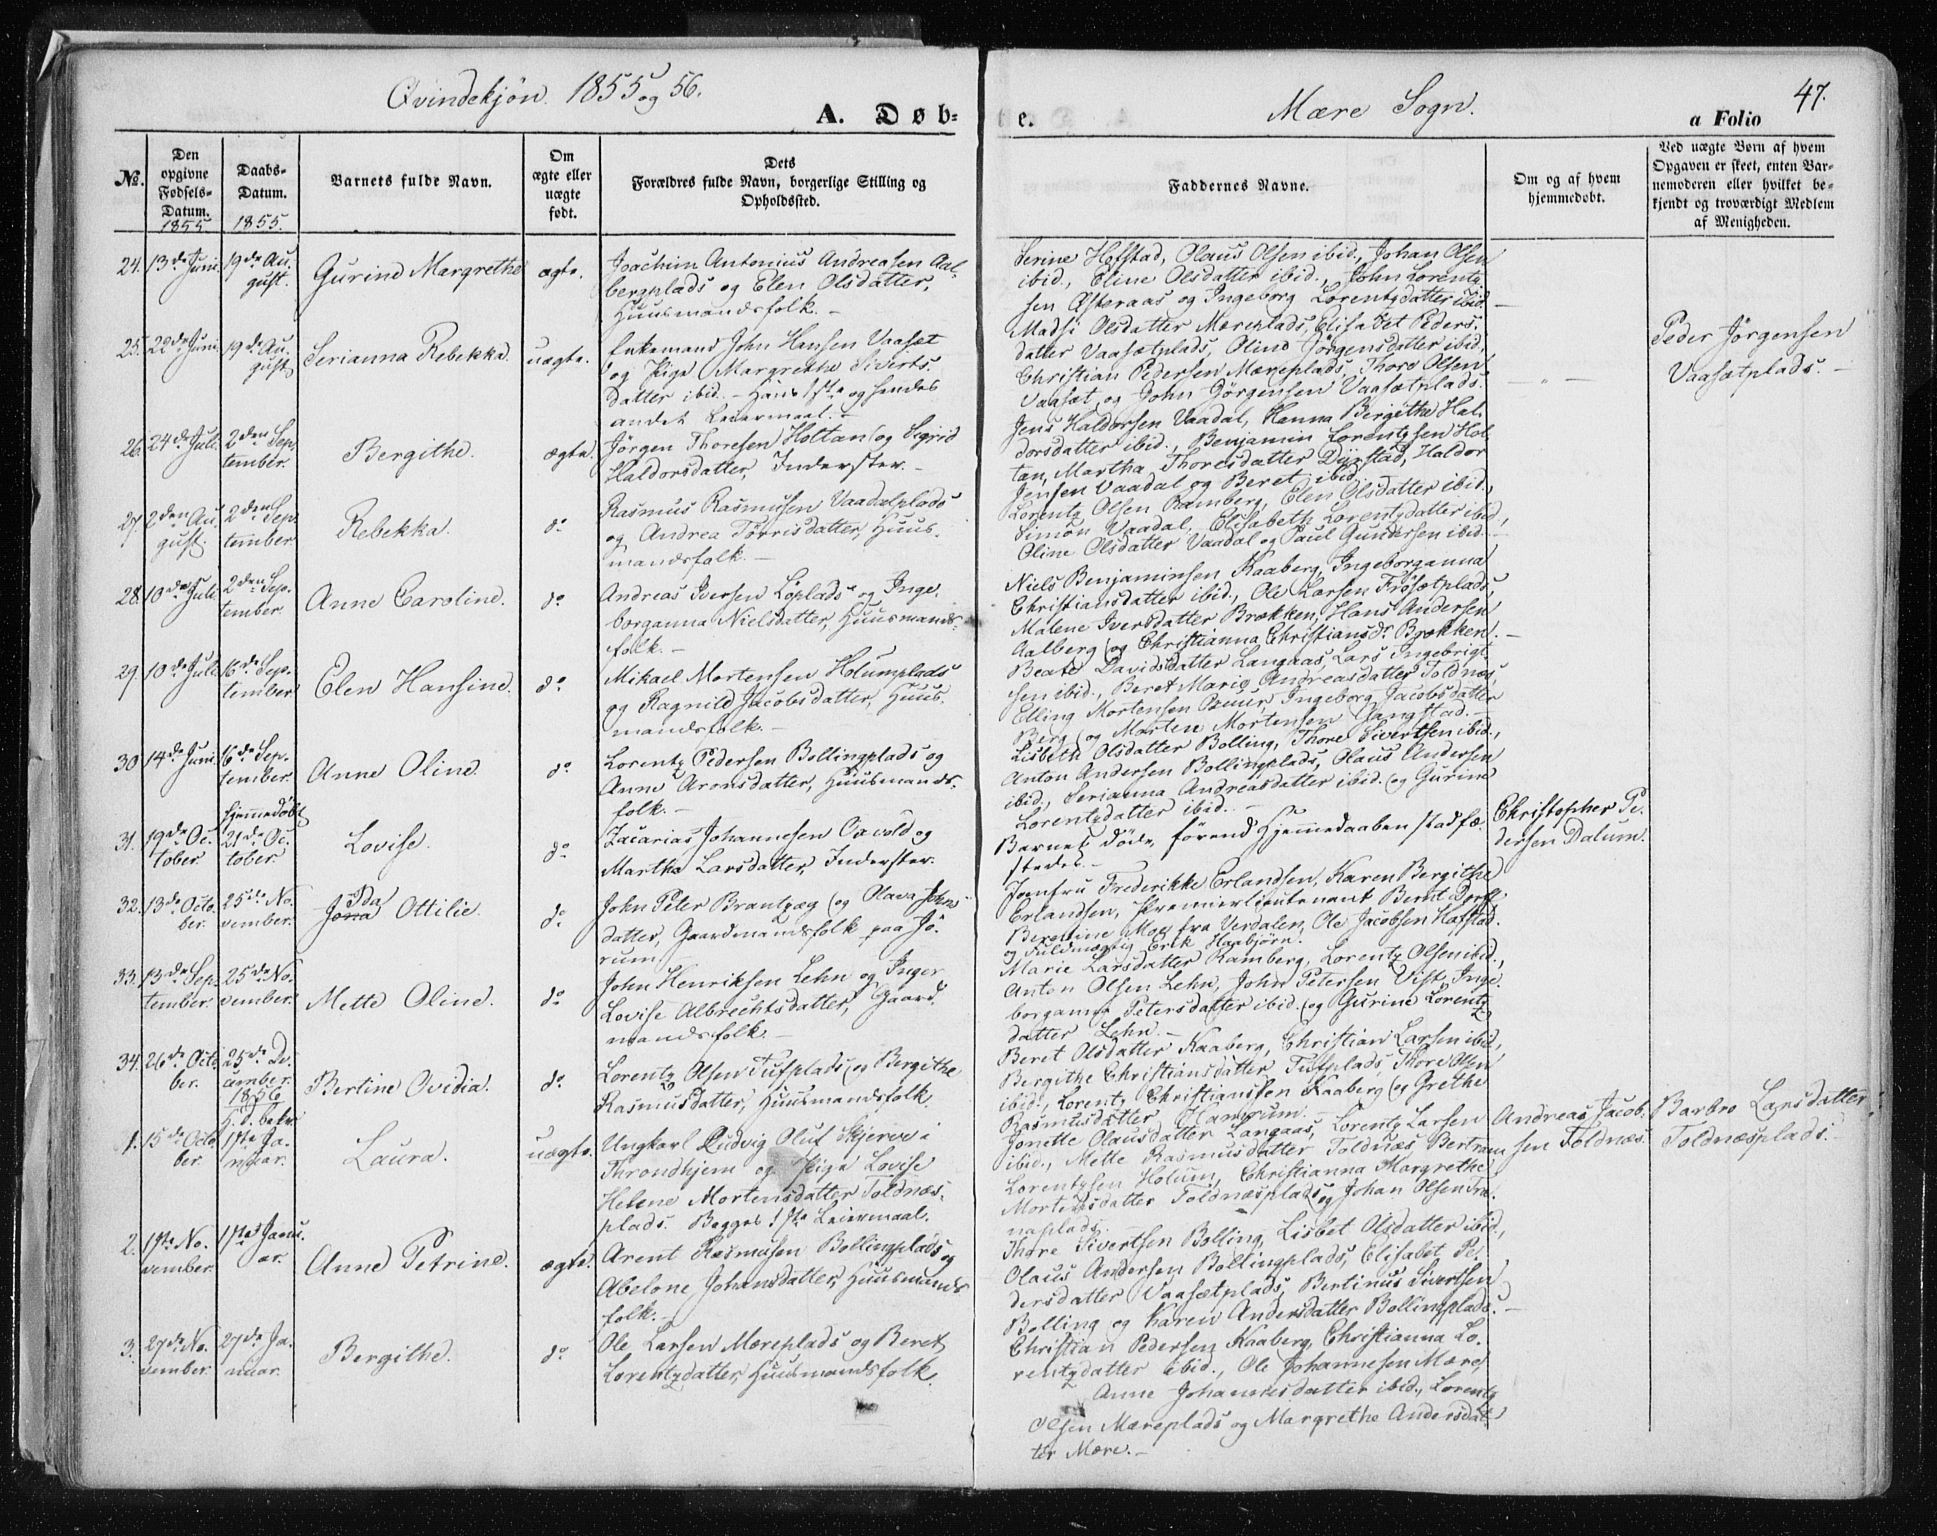 Qvindekjøn. 1855 og 56.
A. Døb-
e.
Mære Sogn.
47.
a Folio
No.
Den opgivne Fødsels-Datum. 1855
Daabs-Datum. 1855.
Barnets fulde Navn.
Om ægte eller uægte født.
Dets Forældres fulde Navn, borgerlige Stilling og Opholdssted.
Faddernes Navne.
Om og af hvem hjemmedøbt.
Ved uægte Børn af hvem Opgaven er skeet, enten Barnemoderen eller hvilket bekjendt og troværdigt Medlem af Menigheden.
24. 13de Juni. 19de August. Gurine Margrethe ægte.
Joachim Antonius Andreasen Aal-
bergplads og Elen Olsdatter,
Huusmandsfolk. -
Serine Hofstad, Olaus Olsen ibid., Johan Olsen
ibid., Eline Olsdatter ibid., John Lorentz-
sen Østeraas og Ingeborg Lorentzdatter ibid.
25. 22de Juni. 19de August. Serianna Rebekka. uægte.
Enkemand John Hansen Vaaset
og Pige Margrethe Siverts-
datter ibid. - Hans 1ste og hendes
andet Leiermaal. -
Madsi Olsdatter Mæreplads, Elisabet Peders-
datter Vaasætplads, Oline Jörgensdatter ibid.,
Christian Pedersen Mæreplads, Thore Olsen
Vaasæt, og John Jörgensen Vaasætplads.
Peder Jørgensen
Vaasætplads. -
26. 24de Juli. 2den September. Bergithe. ægte.
Jörgen Thoresen Holtan og Sigrid
Haldorsdatter, Inderster. -
Jens Haldorsen Vaadal, Hanna Bergithe Hal-
dorsdatter ibid., Benjamin Lorentzsen Hol-
tan, Martha Thoresdatter Dyrstad, Haldor
Jensen Vaadal og Beret ibid.
27. 2den August. 2den September. Rebekka. do
Rasmus Rasmusen Vaadalplads
og Andrea Törrisdatter, Huus-
mandsfolk -
Lorentz Olsen Ramberg, Elen Olsdatter ibid.,
Simon Vaadal, Elisabeth Lorentzdatter ibid.,
Oline Olsdatter Vaadal og Paul Gundersen ibid.
28. 10de Juli. 2den September. Anne Caroline. do
Andreas Iversen Löplads og Inge-
borganna Nielsdatter, Huusmands-
folk. -
Niels Benjaminsen Kaaberg, Ingeborganna
Christiansdatter ibid., Ole Larsen Frösætplads,
Malene Iversdatter Brækken, Hans Andersen
Aalberg og Christianna Christiansdr. Brækken. -
29. 10de Juli. 16de September. Elen Hansine. do
Mikael Mortensen Holumplads
og Ragnild Jacobsdatter, Huus-
mandsfolk. -
Beate Davidsdatter Langaas, Lars Ingebrigt-
sen ibid., Beret Marie Andreasdatter Toldnæs,
Elling Mortensen Buur, Ingeborg Jacobsdatter
Berg og Morten Mortensen Gangstad. -
30 14de Juni. 16de September. Anne Oline. do
Lorentz Pedersen Bollingplads og
Anne Aronsdatter, Huusmands-
folk. -
Lisbeth Olsdatter Bolling, Thore Sivertsen ibid.,
Anton Andersen Bollingplads, Olaus Andersen
ibid., Serianna Andreasdatter ibid. og Gurine
Lorentzdatter ibid. -
31. 19de October hjemmedöbt 21de October. Lovise. do
Zacarias Johannesen Oxvold og
Martha Larsdatter, Inderster.
Barnet döde, förend Hjemmedaaben stadfæ-
stedes. -
Christopher Pe-
dersen Dalum.
32. 13de October. 25de November. Jona Ida Ottilie. do
John Peter Brantzæg og Olava John-
datter, Gaardmandsfolk paa Jö-
rum.
Jomfru Frederikke Erlandsen, Karen Bergithe
Erlandsen, Premierlieutenant Bernt Dorff,
Berntine Moe fra Verdalen, Ole Jacobsen Hafstad.
og Fuldmægtig Erik Haabjörn.
33. 13de September. 25de November. Mette Oline. do
John Henriksen Lehn og Inger
Lovise Albrechtsdatter, Gaard-
mandsfolk. -
Marie Larsdatter Ramberg, Lorentz Olsen ibid.,
Anton Olsen Lehn, John Petersen Vist, Inge-
borganna Petersdatter ibid. og Gurine Lorentz-
datter Lehn. -
34. 26de October. 25de December. Bertine Ovidia. do
Lorentz Olsen Tufplads og Bergithe
Rasmusdatter, Huusmandsfolk.
Beret Olsdatter Kaaberg, Christian Larsen ibid.,
Bergithe Christiansdatter Tufplads, Thore Olsen
ibid., Lorentz Christiansen Kaaberg og Grethe
Rasmusdatter Hamrum.
1856
1. 15de October. H. d. bekr. 1ste Januar. Laura. uægte.
Ungkarl Ludvig Oluf Skjerve i
Throndhjem og Pige Lovise
Helene Mortensdatter Toldnæs-
plads. Begges 1ste Leiermaal.
Jonette Olausdatter Langaas, Lorentz Larsen
ibid., Mette Rasmusdatter Toldnæs, Bertram
Lorentzsen Holum, Christianna Margrethe
Mortensdatter Toldnæsplads og Johan Olsen Tra-
naplads.
Andreas Jacob-
sen Toldnæs.
Barbro Larsdatter
Toldnæsplads. -
2. 1ste November. 1ste Januar. Anne Petrine. ægte.
Arent Rasmusen Bollingplads og
Abelone Johansdatter, Huusmands-
folk. -
Thore Sivertsen Bolling, Lisbet Olsdatter ibid.,
Olaus Andersen Bollingplads, Elisabet Pe-
dersdatter Vaasætplads, Bertinus Sivertsen
Bolling og Karen Andersdatter Bollingplads. -
3. 27de November. 27de Januar. Bergithe. do
Ole Larsen Mæreplads og Beret
Lorentzdatter, Huusmandsfolk.
Christian Pedersen Kaaberg, Christianna Lo-
rentzdatter ibid., Ole Johannesen Mære,
Anne Johannesdatter ibid., Lorentz
Olsen Mæreplads og Margrethe Andersdat-
ter Mære. -